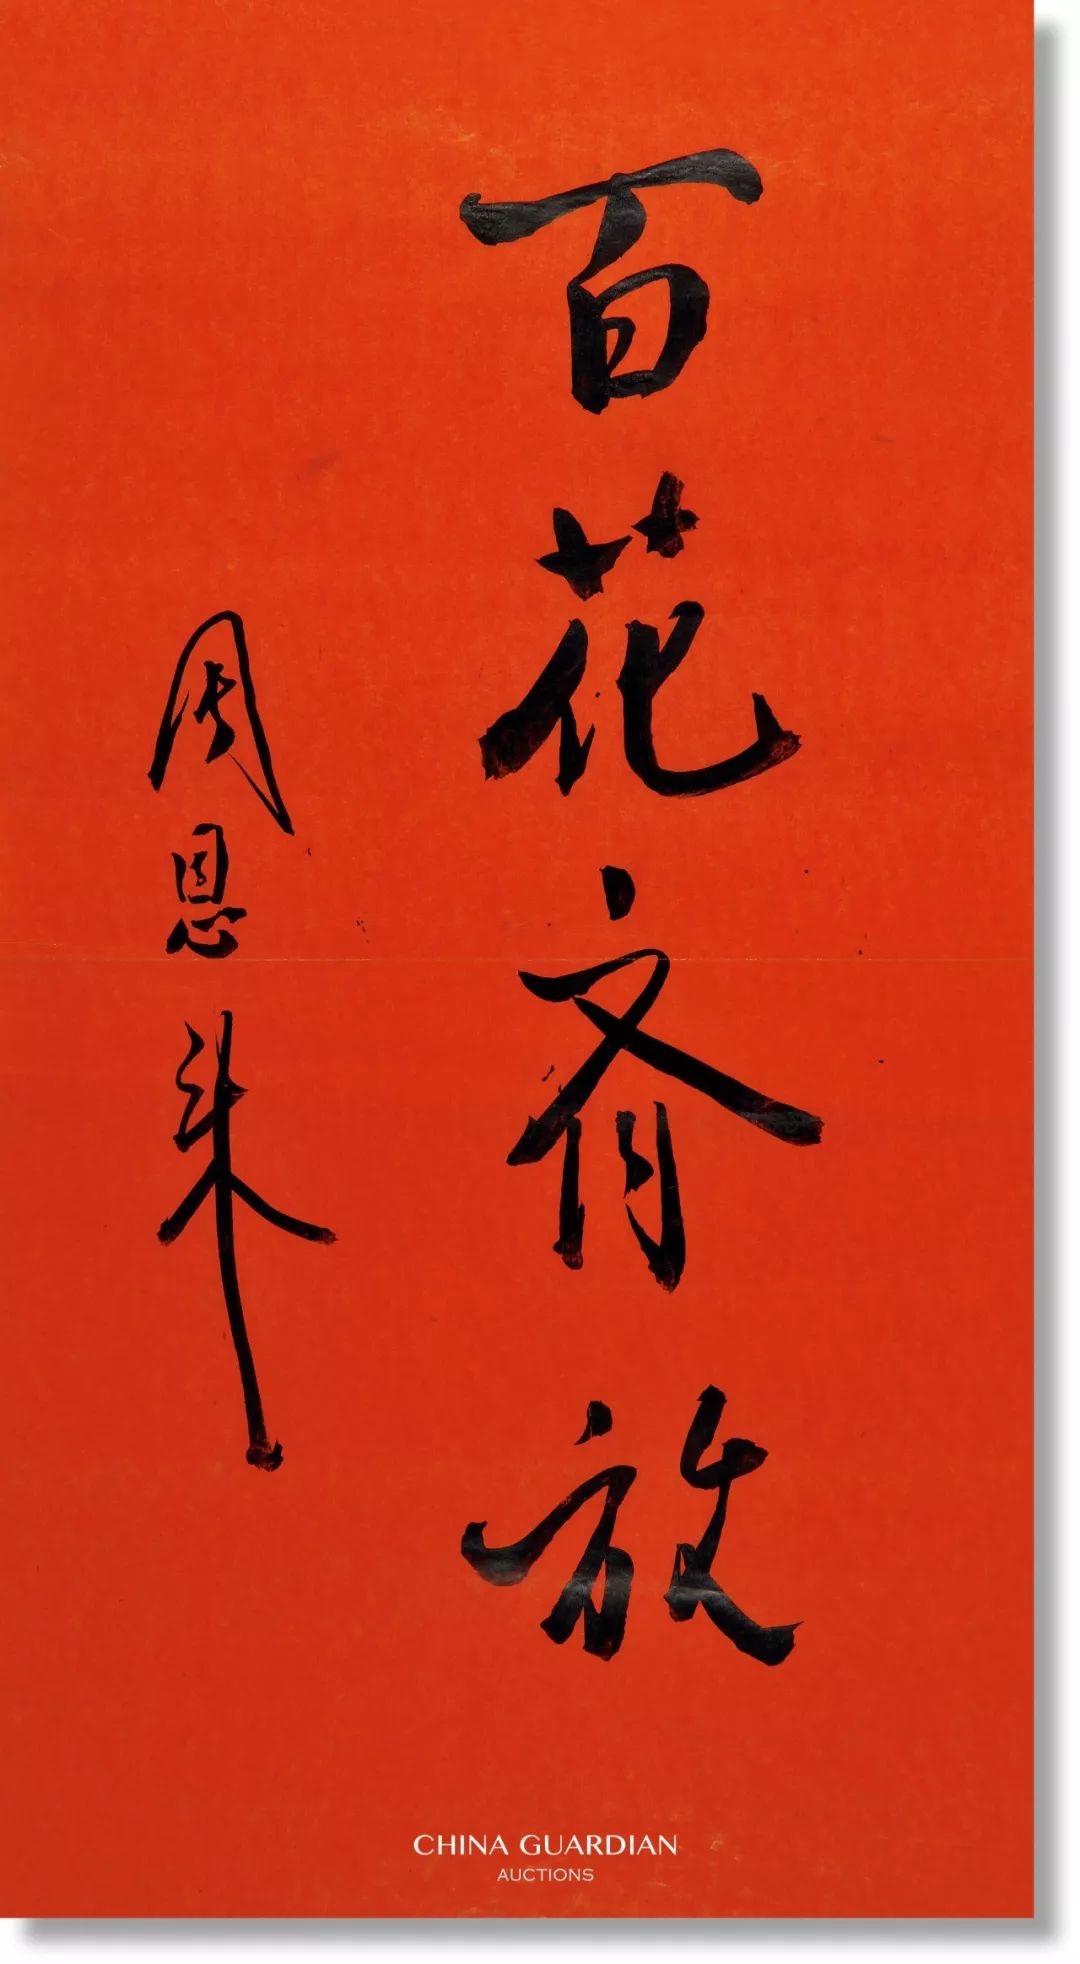 百花齐放
周恩来
CHINA GUARDIAN
AUCTIONS